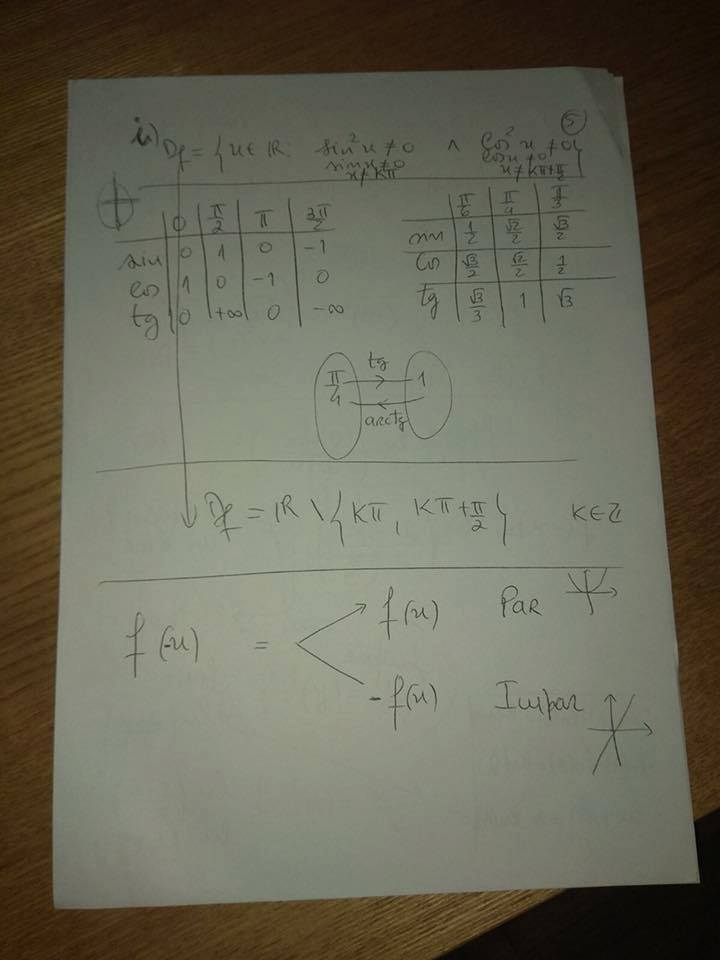 5
i) Df = { x ∈ IR: sin²x ≠ 0 ∧ cos²x ≠ 0 }
sin x ≠ 0 cos x ≠ 0
x ≠ Kπ x ≠ Kπ + π/2
0 π/2 π 3π/2
sin 0 1 0 -1
cos 1 0 -1 0
tg 0 +∞ 0 -∞
π/6 π/4 π/3
sin 1/2 √2/2 √3/2
cos √3/2 √2/2 1/2
tg √3/3 1 √3
tg
π/4 1
arctg
Df = IR \ { Kπ, Kπ + π/2 } K ∈ Z
f(x) Par
f(-x) =
-f(x) Impar